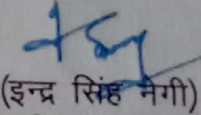 (इन्द्र सिंह नेगी)